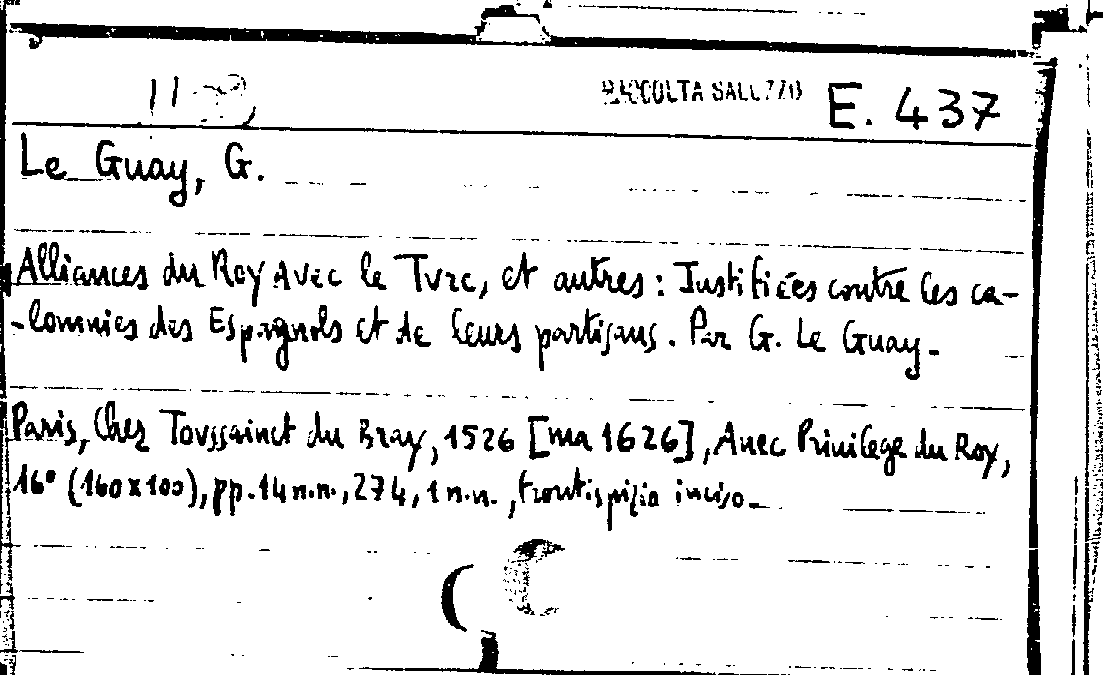 RACCOLTA SALUZZO E. 437
Le Guay, G.
Alliances du Roy Avec le Tvrc, et autres : Justifiées contre les ca-
-lomnies des Espagnols et de leurs partisans. Par G. Le Guay.
Paris, Chez Toussainct du Bray, 1526 [ma 1626], Avec Privilege du Roy,
16° (160x100), pp. 14 n.n., 274, 1 n.n., frontispizio inciso.